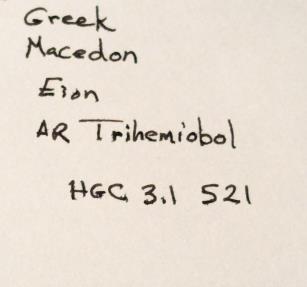 Greek
Macedon
Eion
AR Trihemiobol
HGC 3.1 521